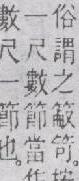 俗謂之笴。
一尺數節當
數尺一節也。